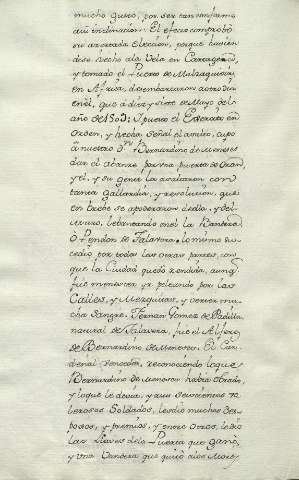 mucho gusto, por ser tan conforme
a su inclinacion. El efecto comprobò
su acertada Eleccion, porque havien
dose hecho ala Vela en Cartagena,
y tomado el Puerto de Mazalquivir,
en Africa, desembarcaron a otro dia
en el, que a diez y siete de Mayo del
año de 1509; Y puesto el Exercito en
Orden, y hecha señal el asalto, cupo
à nuestro Dn Bernardino de Meneses
dar el abance por una puerta de Oran,
y el, y su gente la asaltaron con
tanta gallardia, y resolucion, que
en brebe se apoderaron de ella, y del
Muro, lebantando en el la Bandera
O Pendon de Talavera. lo mismo su-
cedio por todas las otras partes, con
que la Ciudad quedò rendida, aunq
fue menester, yr peleando por las
Calles, y Mezquitas, y verter mu-
cha Sangre. Fernan Gomez de Padilla
natural de Talavera, fue el Alferez
de Bernardino de Meneses. El Car-
denal reconociendo lo que
Bernardino de Meneses habia obrado,
y lo que le devia, y a sus seiscientos va
lerosos Soldados, les dio muchos des-
pojos, y premios, y entre otros, le dio
las llaves de la Puerta que ganò,
y una Bandera que quitò a los Moros